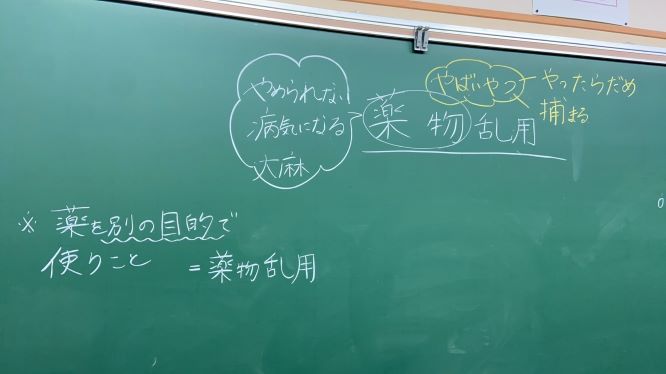 やばいやつ
やったらだめ
捕まる
やめられない
病気になる
大麻
薬物乱用
※ 薬を別の目的で
使うこと = 薬物乱用